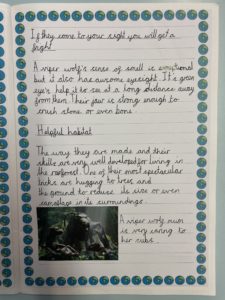 If they come to your sight you will get a
fright.
A viper wolf's sense of smell is exceptional
but it also has awesome eyesight. It's green
eye's help it to see at a long distance away
from them. Their paw is strong enough to
crush stone or even bone.
Helpful habitat
The way they are made and their
skills are very well developed for living in
the rainforest. One of their most spectacular
tricks are hugging to trees and
the ground to reduce its size or even
camoflage in its surroundings.
A viper wolf mum
is very caring to
her cubs.